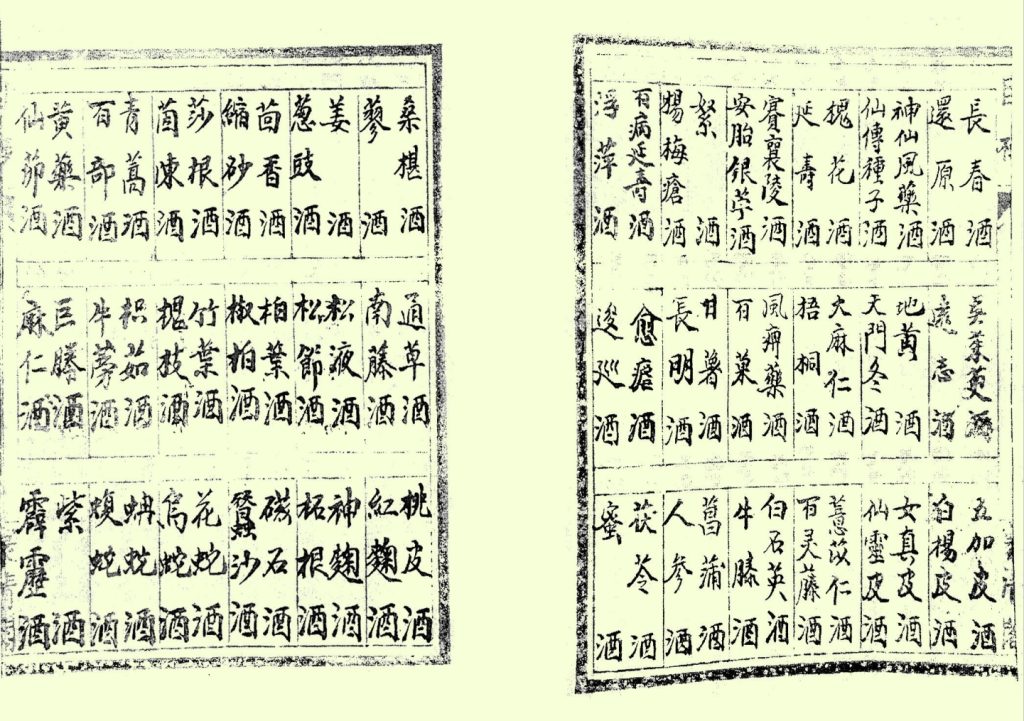 長春酒
還原酒
神仙風藥酒
仙傳種子酒
槐花酒
延壽酒
賽襄陵酒
安胎銀苧酒
絮酒
楊梅瘡酒
百病延壽酒
浮萍酒
吳茱萸酒
遠志酒
地黃酒
天門冬酒
大麻仁酒
梧桐酒
風痹藥酒
百菓酒
甘薯酒
長明酒
愈瘧酒
逡巡酒
五加皮酒
白楊皮酒
女真皮酒
仙靈皮酒
薏苡仁酒
百灵藤酒
白石英酒
牛膝酒
菖蒲酒
人參酒
茯苓酒
蜜酒
桑椹酒
蓼酒
姜酒
葱豉酒
茴香酒
縮砂酒
莎根酒
茵陳酒
青蒿酒
百部酒
黃藥酒
仙茆酒
通草酒
南藤酒
松液酒
松節酒
柏葉酒
椒柏酒
竹葉酒
槐枝酒
枳茹酒
牛蒡酒
巨勝酒
麻仁酒
桃皮酒
紅麴酒
神麴酒
柘根酒
磁石酒
蠶沙酒
花蛇酒
烏蛇酒
蚺蛇酒
蝮蛇酒
紫酒
霹靂酒